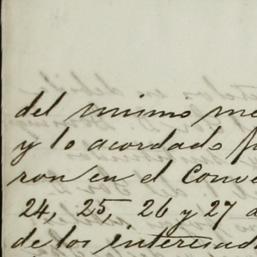 del mismo me
y lo acordado p
ron en el Conve
24, 25, 26 y 27 d
de los interesad